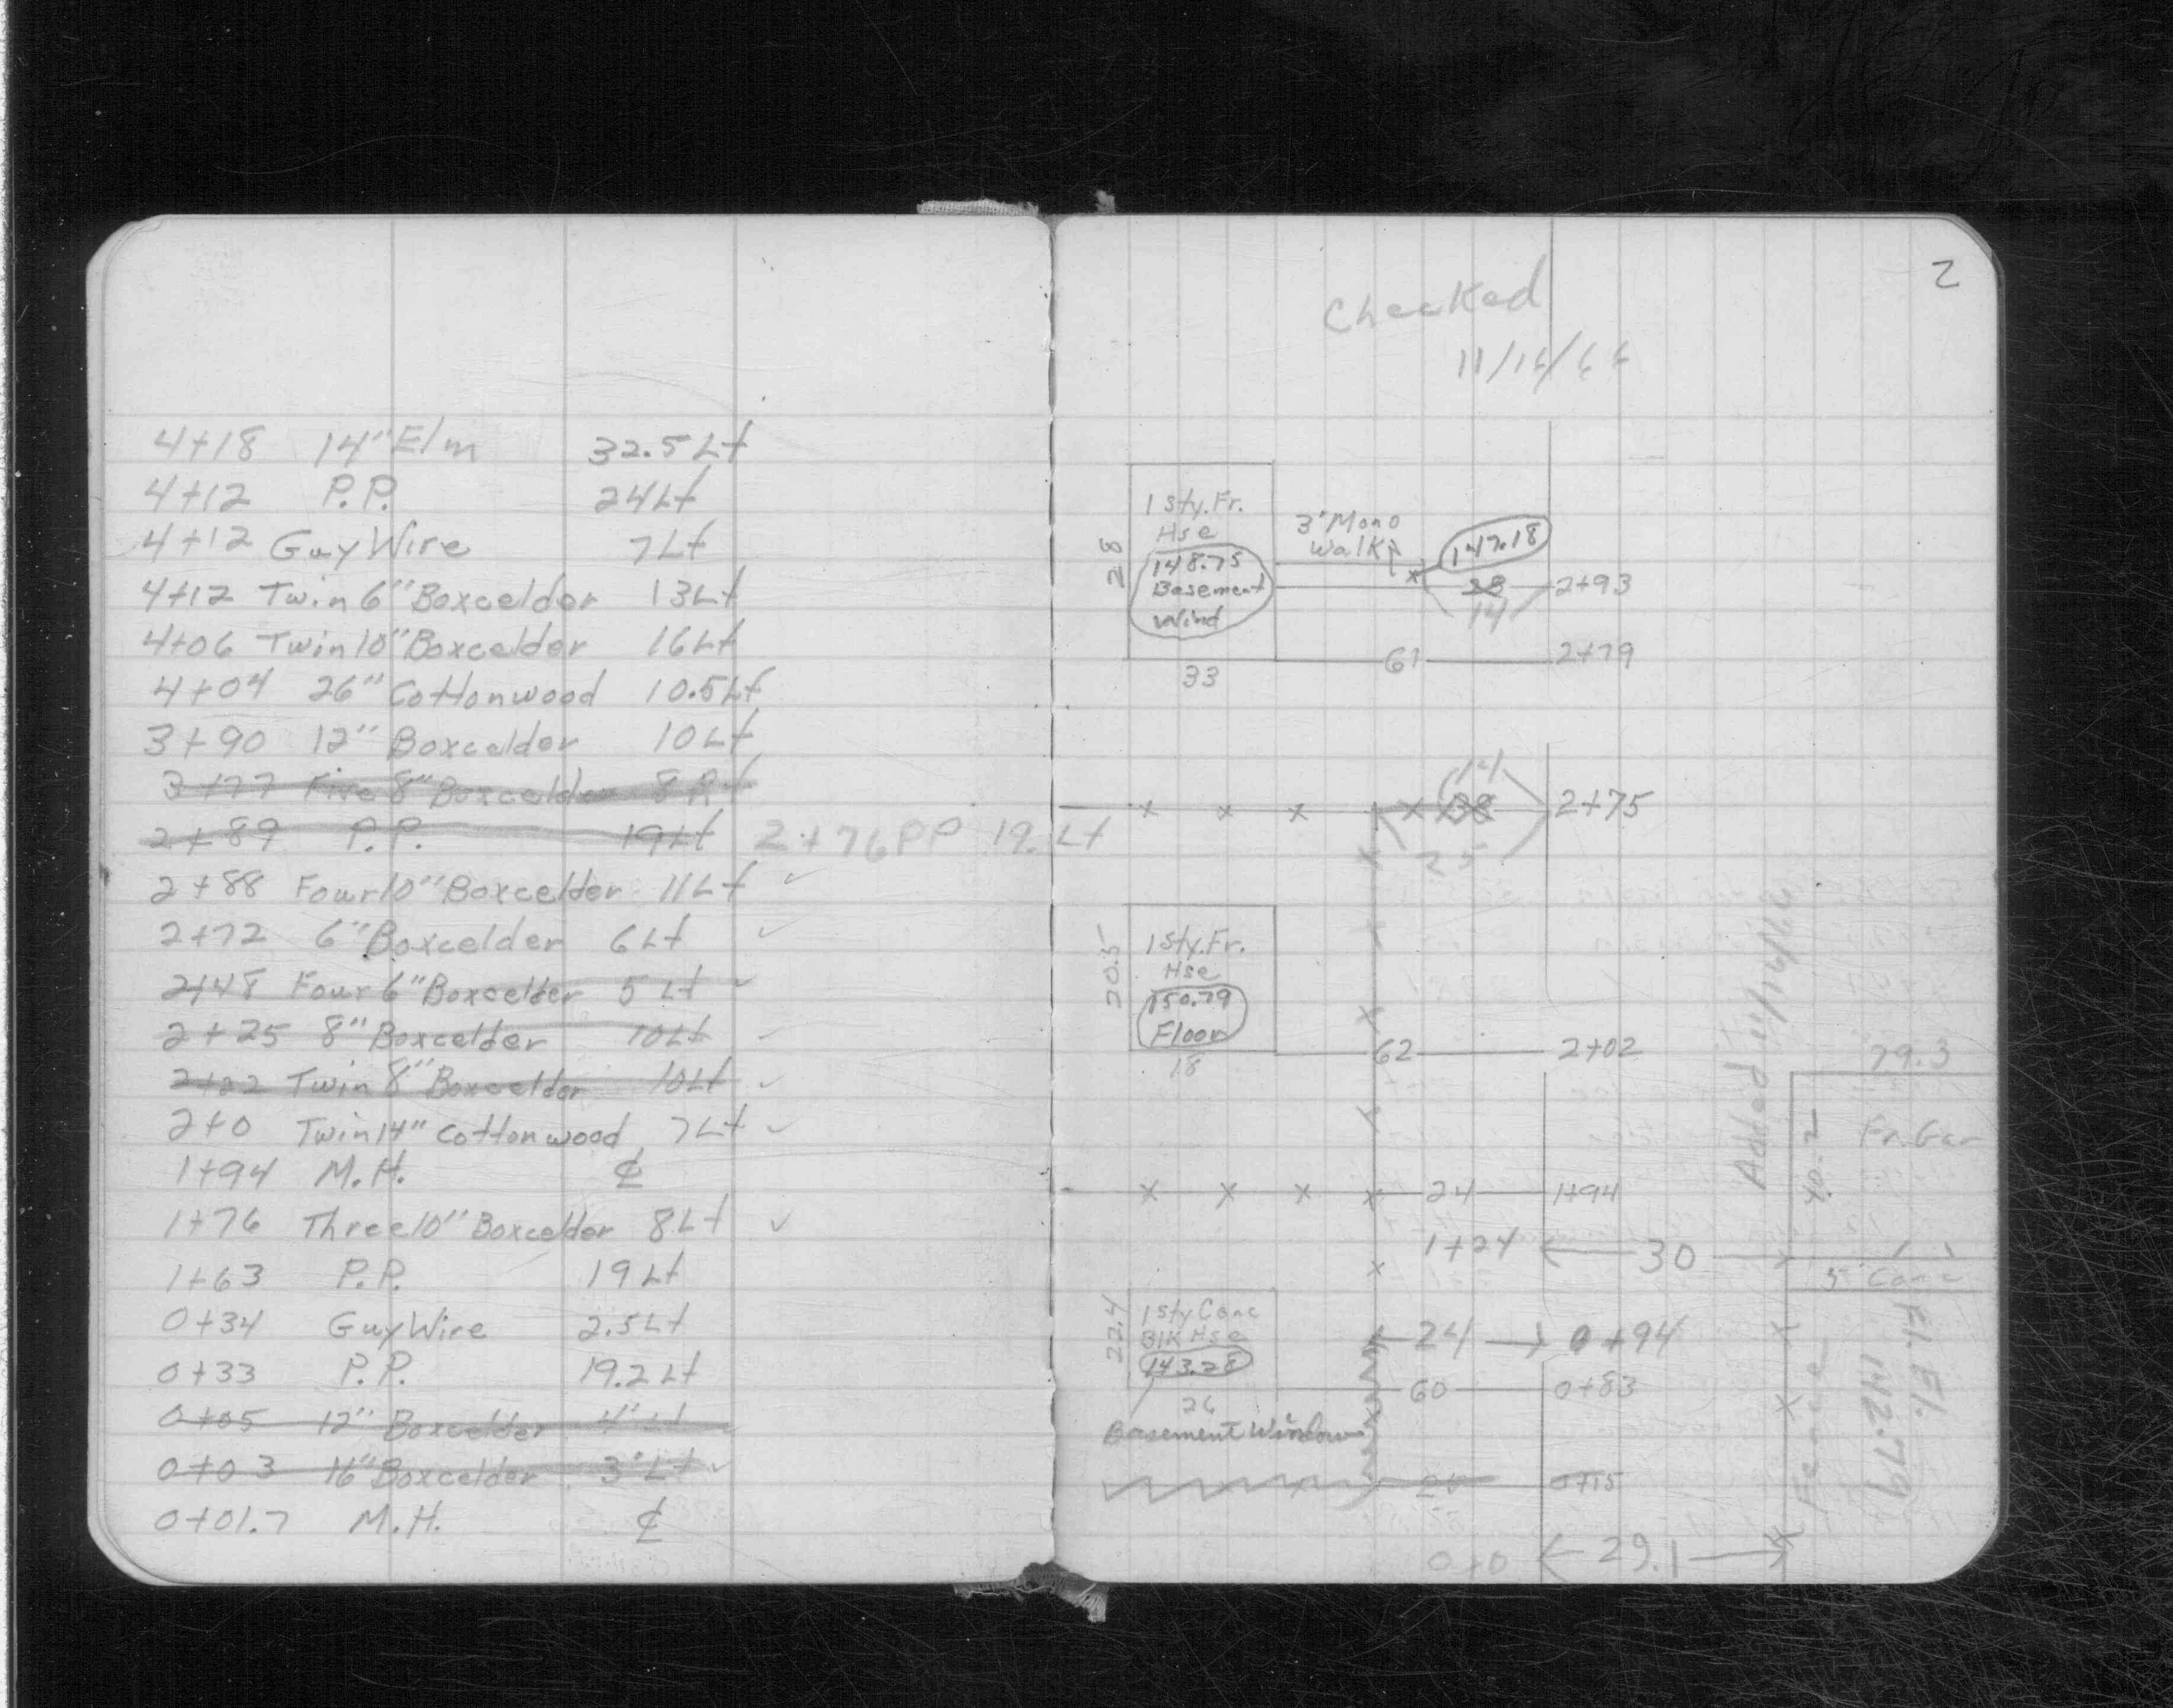 4+18 14" Elm 32.5 Lt
4+12 P.P. 24 Lt
4+12 Guy Wire 7 Lt
4+12 Twin 6" Boxcelder 13 Lt
4+06 Twin 10" Boxcelder 16 Lt
4+04 26" Cottonwood 10.5 Lt
3+90 12" Boxcelder 10 Lt
3+77 Five 8" Boxcelder 8 Rt
2+89 P.P. 19 Lt 2+76 PP 19. Lt
2+88 Four 10" Boxcelder 11 Lt ✓
2+72 6" Boxcelder 6 Lt ✓
2+48 Four 6" Boxcelder 5 Lt ✓
2+25 8" Boxcelder 10 Lt ✓
2+22 Twin 8" Boxcelder 10 Lt ✓
2+0 Twin 14" Cottonwood 7 Lt ✓
1+94 M.H. ℄
1+76 Three 10" Boxcelder 8 Lt ✓
1+63 P.P. 19 Lt
0+34 Guy Wire 2.5 Lt
0+33 P.P. 19.2 Lt
0+05 12" Boxcelder 4' Lt
0+03 16" Boxcelder 3' Lt ✓
0+01.7 M.H. ℄
2
Checked
11/16/66
1 Sty. Fr.
Hse
148.75
Basement
Wind
28
33
3' Mono
Walk
147.18
38
2+93
14
61
2+79
14
38
2+75
25
1 Sty. Fr.
Hse
150.79
Floor
20.5
18
62
2+02
Added 11/16/66
79.3
40.2
Fr. Gar
24
1+94
1+24
30
5' Conc
1 Sty Conc
Blk Hse
143.28
22.4
26
Basement Window
24
0+94
60
0+83
Fence
Fl. El.
142.79
0+15
0+0
29.1